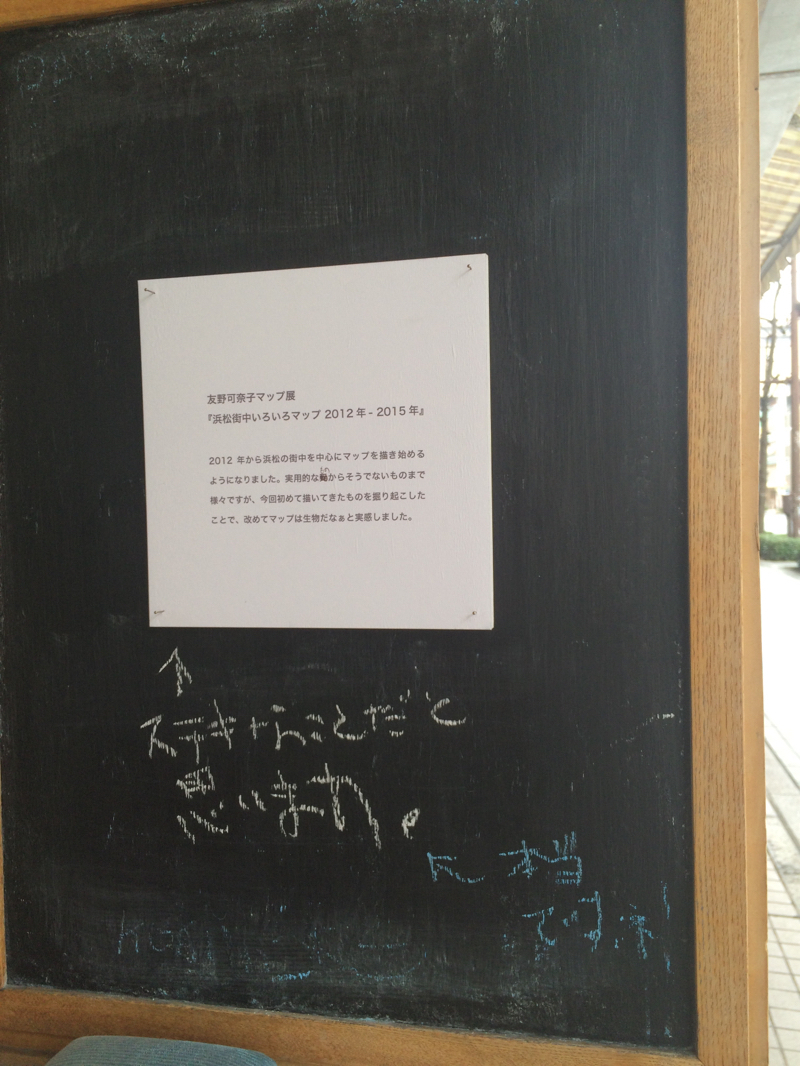 友野可奈子マップ展
『浜松街中いろいろマップ 2012 年 - 2015 年』
2012 年から浜松の街中を中心にマップを描き始める
ようになりました。実用的なものからそうでないものまで
様々ですが、今回初めて描いてきたものを掘り起こした
ことで、改めてマップは生物だなぁと実感しました。
↑
ステキなことだと
思います。
本当
ですね!